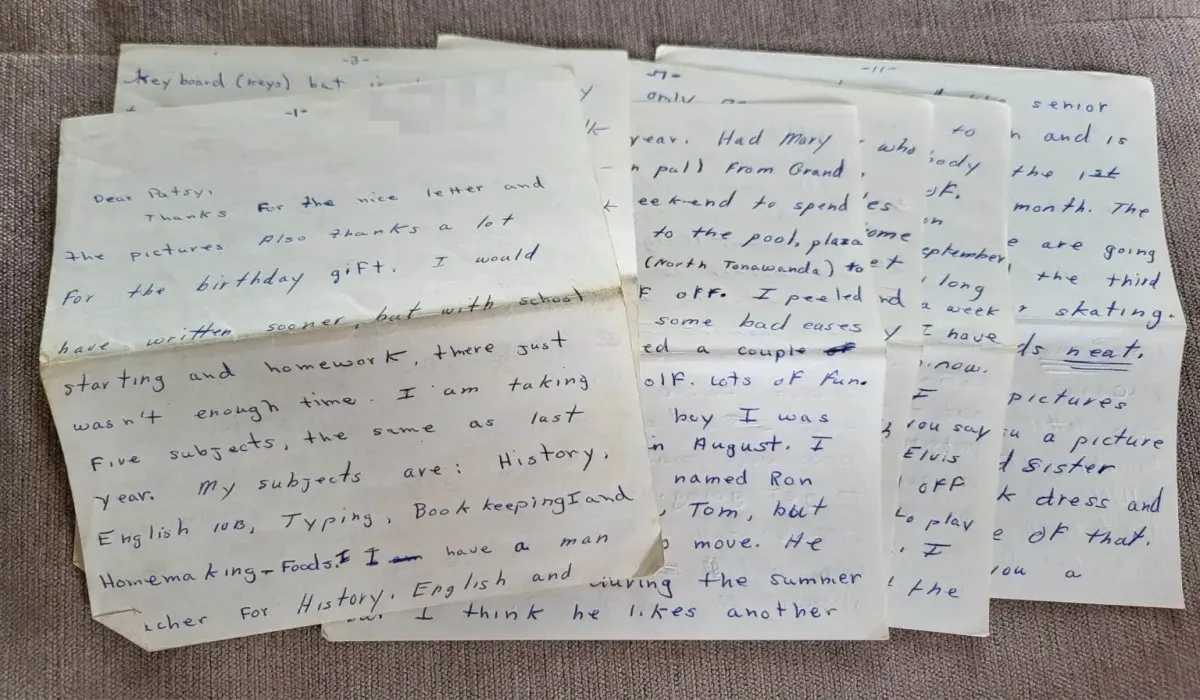 -1-
Dear Patsy,
Thanks for the nice letter and
the pictures Also thanks a lot
for the birthday gift. I would
have written sooner, but with school
starting and homework, there just
wasn't enough time. I am taking
Five subjects, the same as last
year. My subjects are: History,
English 10B, Typing, Book keeping I and
Homemaking-Foods I I have a man
cher for History, English and
-3-
key board (keys) but
only
year. Had Mary
n pal) From Grand
eekend to spend
to the pool, plaza
(North Tonawanda) to
F off. I peeled
some bad cases
ed a couple of
olf. Lots of fun.
boy I was
n August. I
named Ron
, Tom, but
move. He
during the summer
I think he likes another
who
es
ome
et
nd
y
to
body
on
eptember
long
a week
I have
now.
I
you say
Elvis
off
to play
. I
the
-11-
senior
n and is
the 1st
month. The
e are going
the third
skating.
ds neat.
pictures
u a picture
d sister
k dress and
e of that.
you a